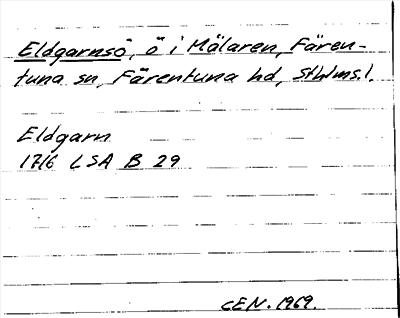 Eldgarnsö, ö i Mälaren, Fären-
tuna sn, Färentuna hd, Sthlms l.
Eldgarn
1716 LSA B 29
CEN. 1969.